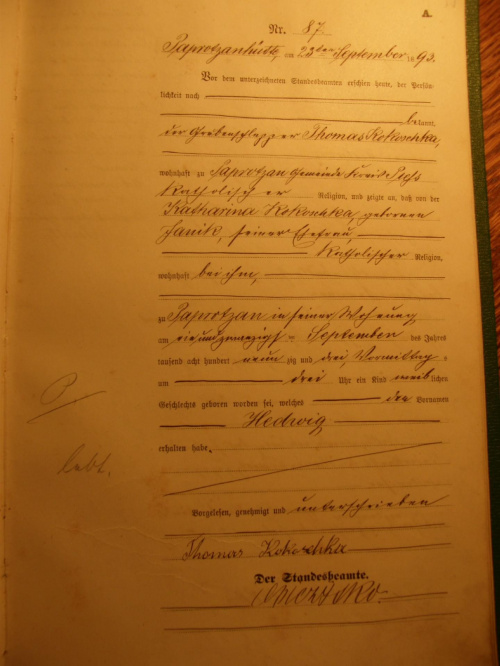 A.
Nr. 87.
Paprotzanhütte, am 23ten September 1893.
Vor dem unterzeichneten Standesbeamten erschien heute, der Persön-
lichkeit nach
bekannt,
der Grubenschlepper Thomas Kokoschka,
wohnhaft zu Paprotzan Gemeinde Kreis Pless
katholischer Religion, und zeigte an, daß von der
Katharina Kokoschka, geborenen
Janik, seiner Ehefrau,
katholischer Religion,
wohnhaft bei ihm,
zu Paprotzan in seiner Wohnung
am einundzwanzigst September des Jahres
tausend acht hundert neunzig und drei, Vormittag
um drei Uhr ein Kind weiblichen
Geschlechts geboren worden sei, welches den Vornamen
Hedwig
erhalten habe.
lebt.
Vorgelesen, genehmigt und unterschrieben
Thomas Kokoschka
Der Standesbeamte.